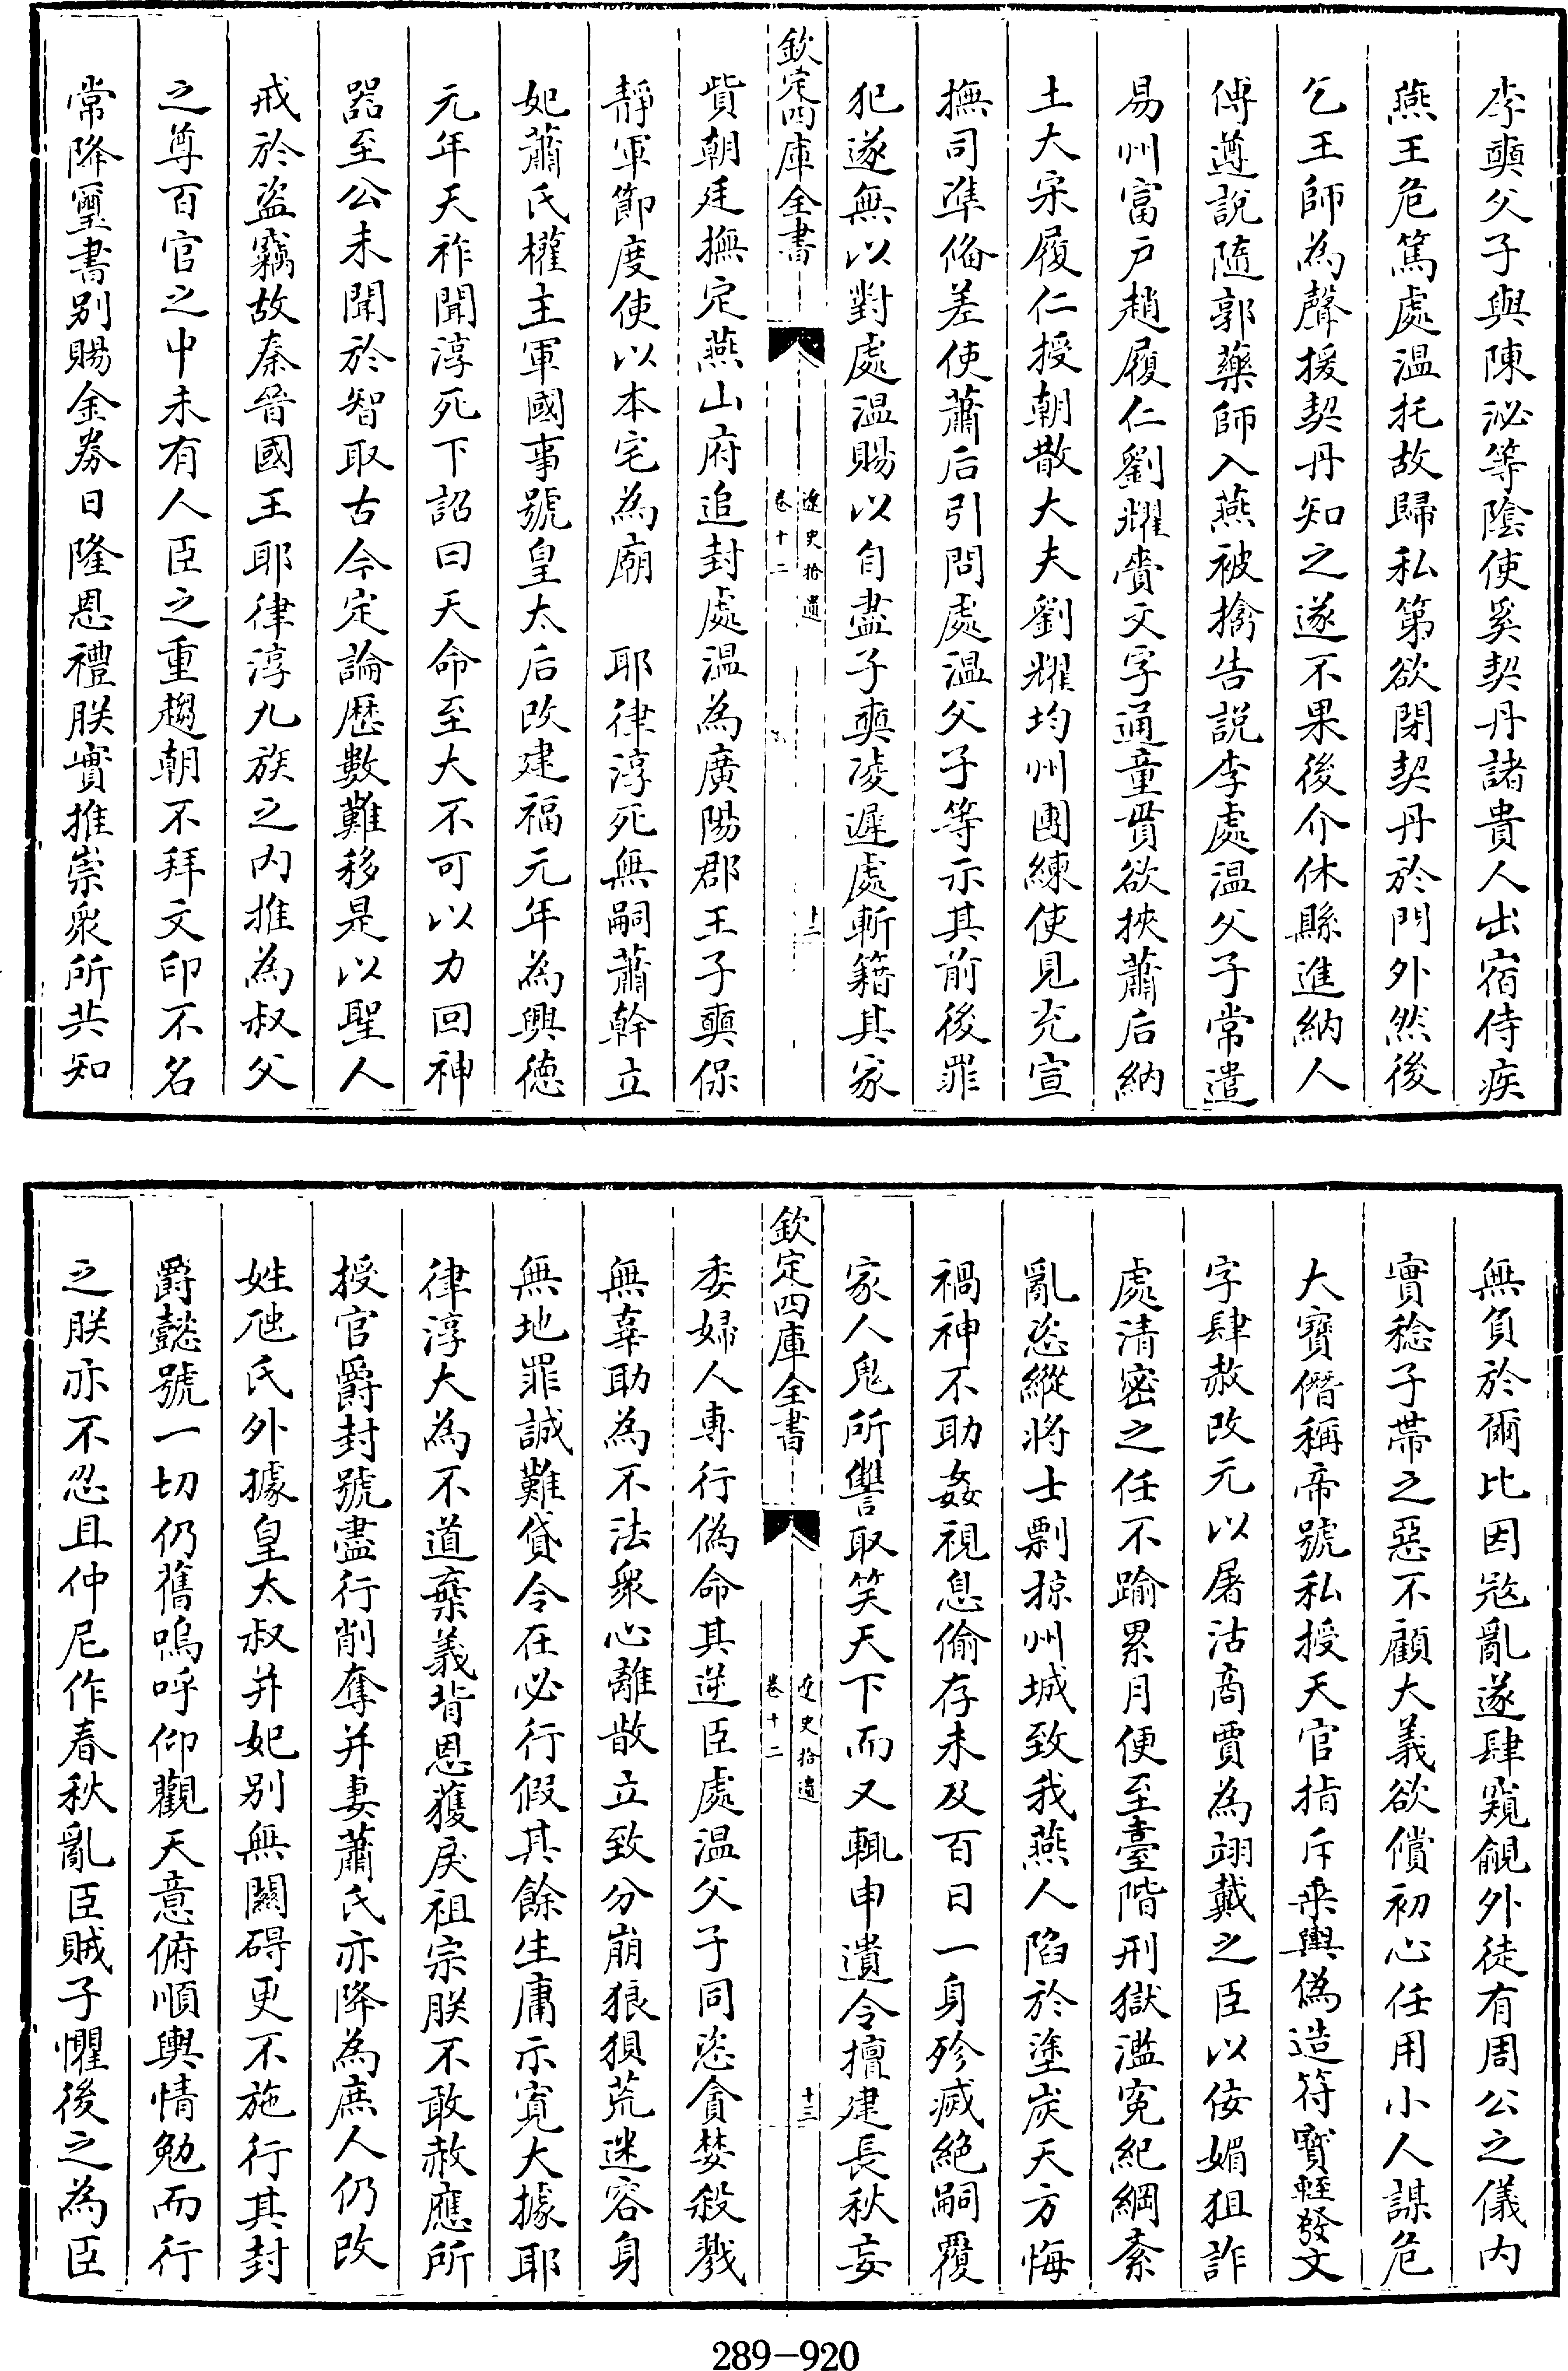 李奭父子與陳泌等陰使奚契丹諸貴人出宿侍疾
燕王危篤處温托故歸私第欲閉契丹於門外然後
乞王師為聲援契丹知之遂不果後介休縣進納人
傅遵說隨郭藥師入燕被擒告説李處温父子常遣
易州富户趙履仁劉耀賫文字通童貫欲挾蕭后納
土大宋履仁授朝散大夫劉耀均州團練使見充宣
撫司準俻差使蕭后引問處温父子等示其前後罪
犯遂無以對處温賜以自盡子奭凌遲處斬籍其家
欽定四庫全書
遼史拾遺
卷十二
十二
貲朝廷撫定燕山府追封處温為廣陽郡王子奭保
靜軍節度使以本宅為廟　耶律淳死無嗣蕭幹立
妃蕭氏權主軍國事號皇太后改建福元年為興德
元年天祚聞淳死下詔曰天命至大不可以力回神
器至公未聞於智取古今定論歴數難移是以聖人
戒於盗竊故秦晉國王耶律淳九族之内推為叔父
之尊百官之中未有人臣之重趨朝不拜文印不名
常降璽書别賜金劵日隆恩禮朕實推崇衆所共知
無負於爾比因寇亂遂肆窺覦外徒有周公之儀内
實稔子帶之惡不顧大義欲償初心任用小人謀危
大寶僭稱帝號私授天官指斥乗輿偽造符寳輕發文
字肆赦改元以屠沽商賈為翊戴之臣以佞媚狙詐
處清密之任不踰累月便至臺階刑獄濫寃紀綱紊
亂恣縱將士剽掠州城致我燕人陷於塗炭天方悔
禍神不助姦視息偷存未及百日一身殄滅絶嗣覆
家人鬼所讐取笑天下而又輒申遺令擅建長秋妄
欽定四庫全書
遼史拾遺
卷十二
十三
委婦人專行偽命其逆臣處温父子同恣貪婪殺戮
無辜助為不法衆心離散立致分崩狼狽荒迷容身
無地罪誠難貸令在必行假其餘生庸示寛大據耶
律淳大為不道棄義背恩獲戾祖宗朕不敢赦應所
授官爵封號盡行削奪并妻蕭氏亦降為庶人仍改
姓虺氏外據皇太叔并妃别無闗碍更不施行其封
爵懿號一切仍舊嗚呼仰觀天意俯順輿情勉而行
之朕亦不忍且仲尼作春秋亂臣賊子懼後之為臣
289-920